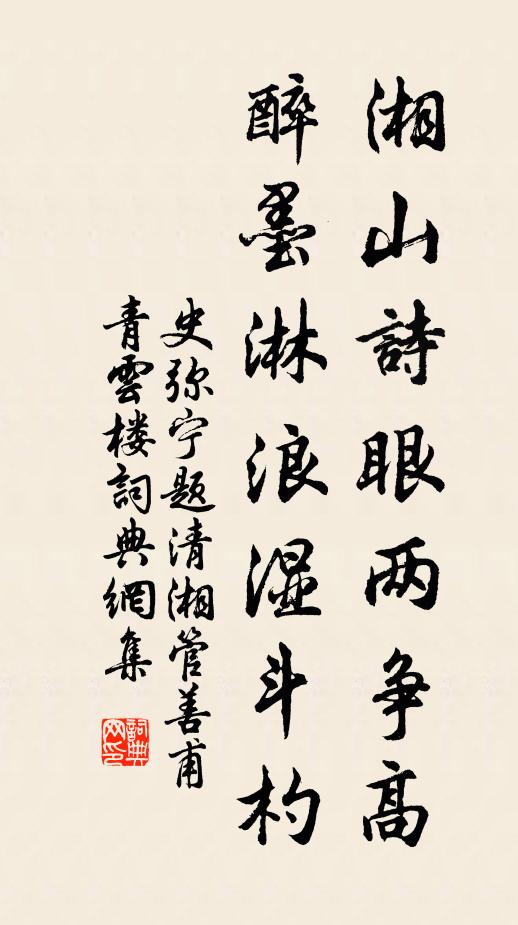 湘山詩眼两争高
醉墨淋浪湿斗杓
史弥宁题清湘管善甫
青雲楼詞典網集
詞典
网印